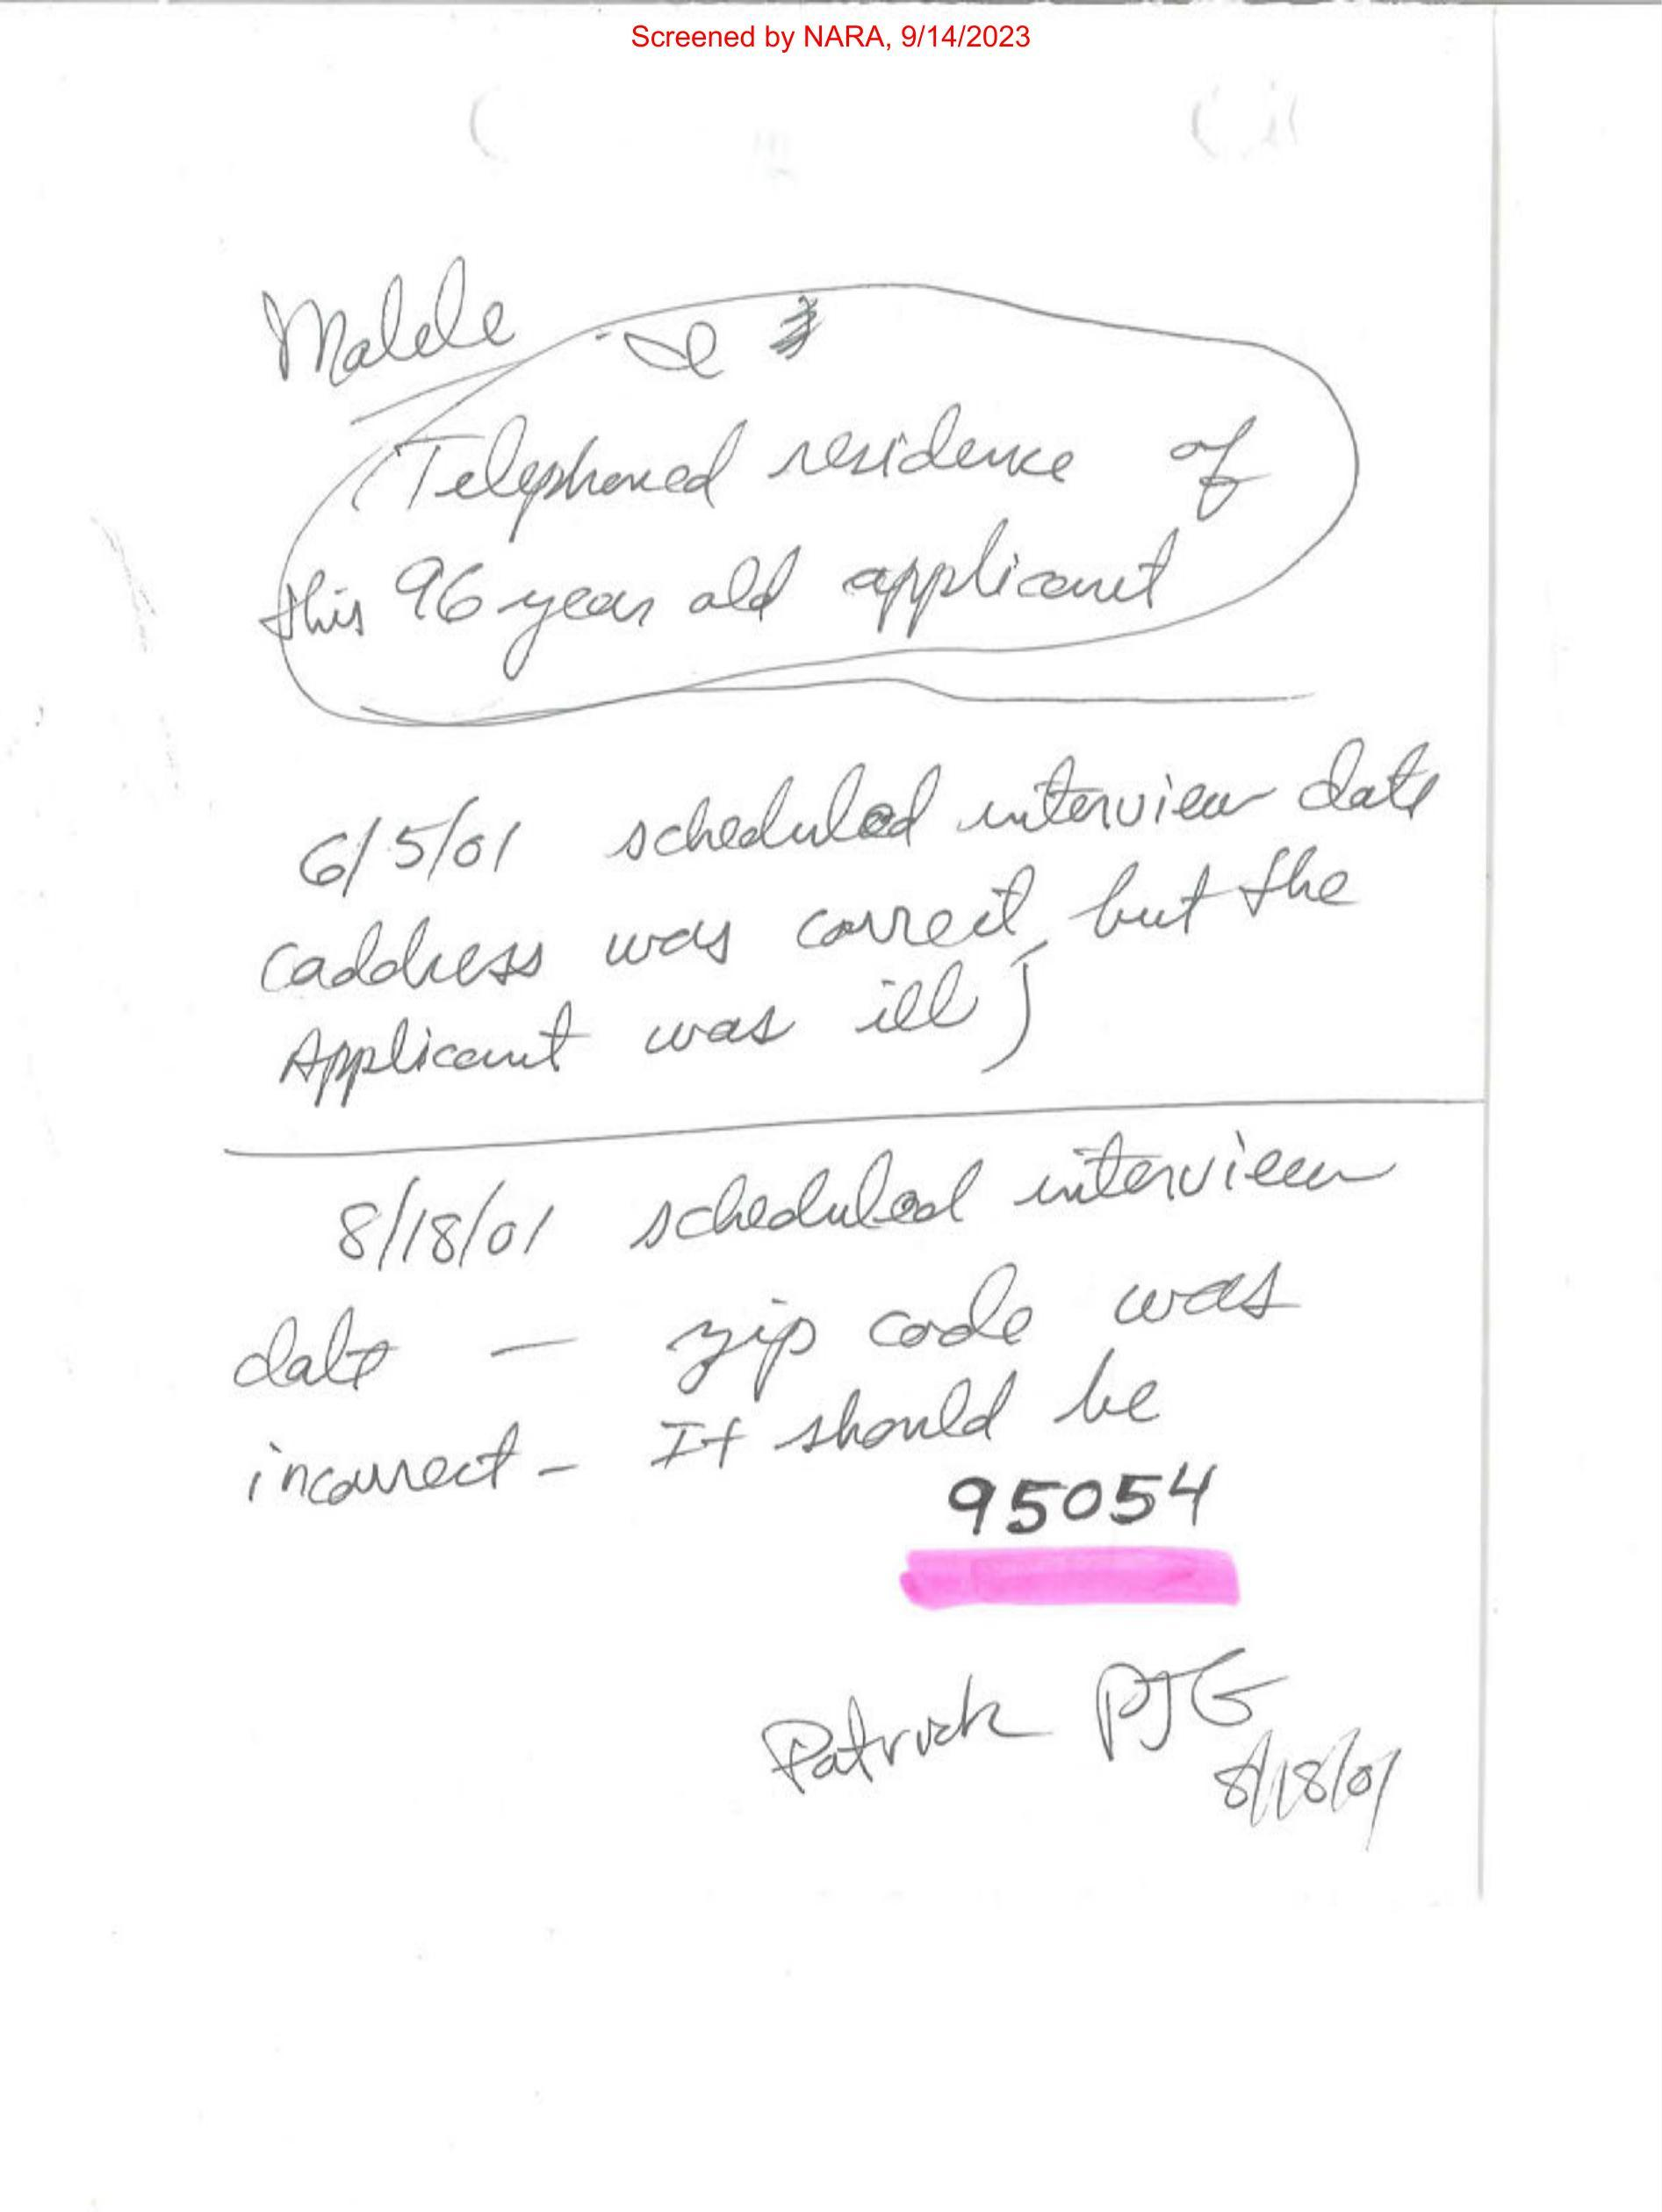 Screened by NARA, 9/14/2023
Telephoned residence of
this 96 year old applicant
6/5/01 scheduled interview date
(address was correct, but the
Applicant was ill)
8/18/01 scheduled interview
date — zip code was
incorrect - It should be
95054
Patrick PJG
8/18/01